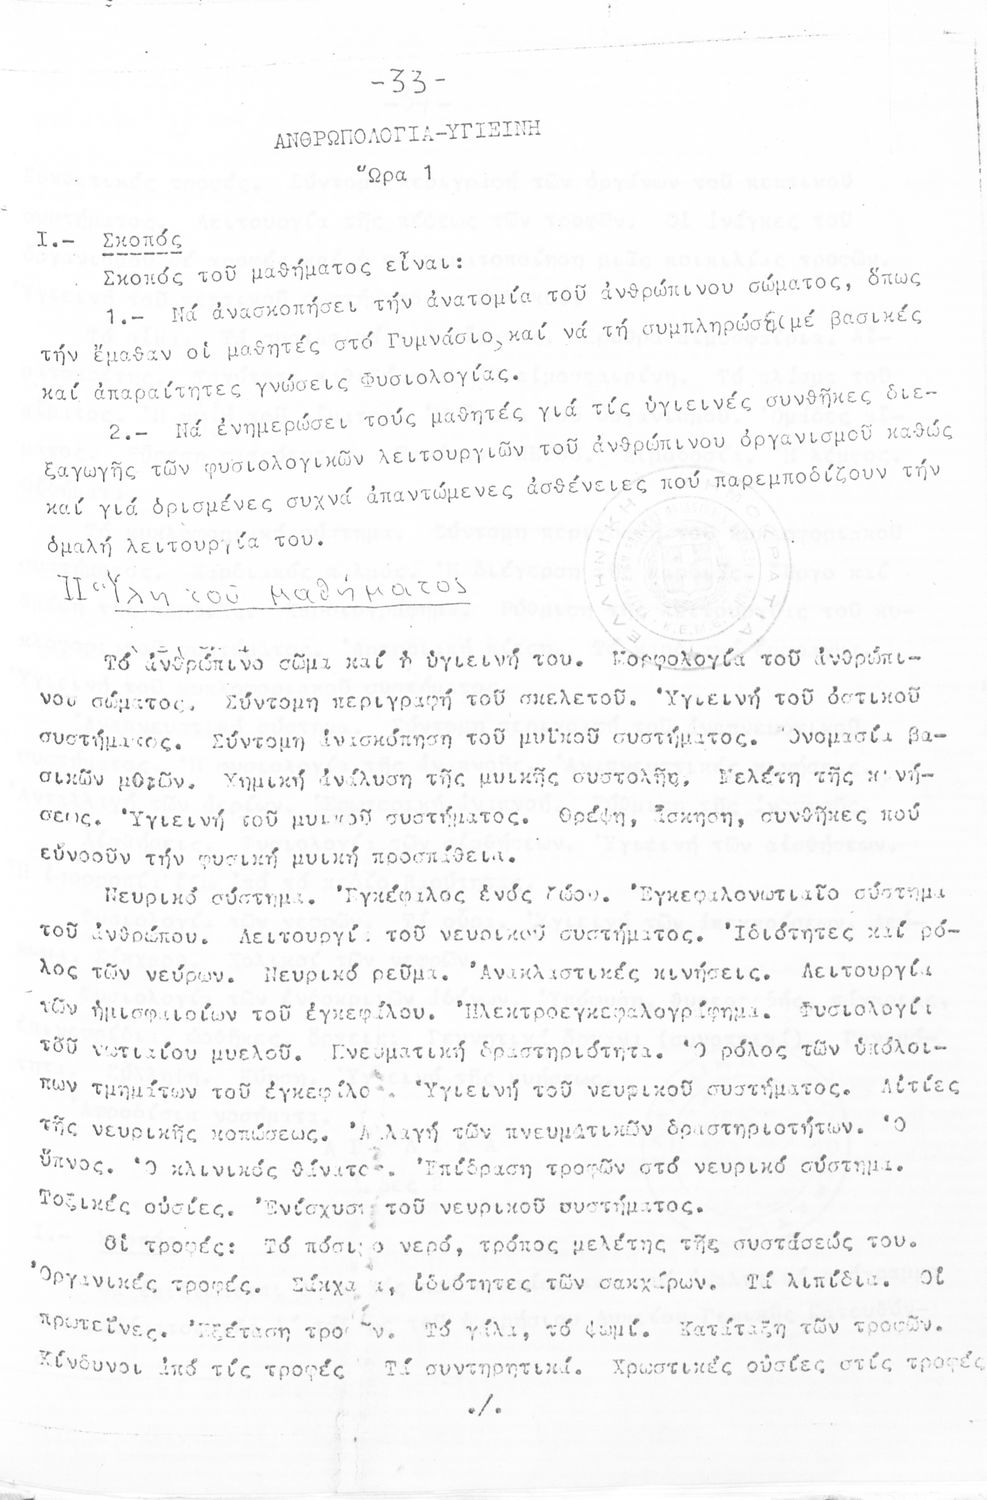 -33-
ΑΝΘΡΩΠΟΛΟΓΙΑ-ΥΓΙΕΙΝΗ
Ὥρα 1
Ι.- Σκοπός
Σκοπός τοῦ μαθήματος εἶναι:
1.- Νά ἀνασκοπήσει τήν ἀνατομία τοῦ ἀνθρώπινου σώματος, ὅπως
τήν ἔμαθαν οἱ μαθητές στό Γυμνάσιο, καί νά τή συμπληρώσει μέ βασικές
καί ἀπαραίτητες γνώσεις Φυσιολογίας.
2.- Νά ἐνημερώσει τούς μαθητές γιά τίς ὑγιεινές συνθῆκες διε-
ξαγωγῆς τῶν φυσιολογικῶν λειτουργιῶν τοῦ ἀνθρώπινου ὀργανισμοῦ καθώς
καί γιά ὁρισμένες συχνά ἀπαντώμενες ἀσθένειες πού παρεμποδίζουν τήν
ὁμαλή λειτουργία του.
ΙΙ Ὕλη τοῦ μαθήματος
Τό ἀνθρώπινο σῶμα καί ἡ ὑγιεινή του. Μορφολογία τοῦ ἀνθρώπι-
νου σώματος. Σύντομη περιγραφή τοῦ σκελετοῦ. Ὑγιεινή τοῦ ὀστικοῦ
συστήματος. Σύντομη ἀνασκόπηση τοῦ μυϊκοῦ συστήματος. Ὀνομασία βα-
σικῶν μυῶν. Χημική ἀνάλυση τῆς μυικῆς συστολῆς. Μελέτη τῆς κινή-
σεως. Ὑγιεινή τοῦ μυικοῦ συστήματος. Θρέψη, ἄσκηση, συνθῆκες πού
εὐνοοῦν τήν φυσική μυική προσπάθεια.
Νευρικό σύστημα. Ἐγκέφαλος ἑνός ζώου. Ἐγκεφαλονωτιαῖο σύστημα
τοῦ ἀνθρώπου. Λειτουργία τοῦ νευρικοῦ συστήματος. Ἰδιότητες καί ρό-
λος τῶν νεύρων. Νευρικό ρεῦμα. Ἀνακλαστικές κινήσεις. Λειτουργία
τῶν ἡμισφαιρίων τοῦ ἐγκεφάλου. Ἠλεκτροεγκεφαλογράφημα. Φυσιολογία
τοῦ νωτιαίου μυελοῦ. Πνευματική δραστηριότητα. Ὁ ρόλος τῶν ὑπόλοι-
πων τμημάτων τοῦ ἐγκεφάλου. Ὑγιεινή τοῦ νευρικοῦ συστήματος. Αἰτίες
τῆς νευρικῆς κοπώσεως. Ἀλλαγή τῶν πνευματικῶν δραστηριοτήτων. Ὁ
ὕπνος. Ὁ κλινικός θάνατος. Ἐπίδραση τροφῶν στό νευρικό σύστημα.
Τοξικές οὐσίες. Ἐνίσχυση τοῦ νευρικοῦ συστήματος.
Οἱ τροφές: Τό πόσιμο νερό, τρόπος μελέτης τῆς συστάσεώς του.
Ὀργανικές τροφές. Σάκχαρα, ἰδιότητες τῶν σακχάρων. Τά λιπίδια. Οἱ
πρωτεΐνες. Ἐξέταση τροφῶν. Τό γάλα, τό ψωμί. Κατάταξη τῶν τροφῶν.
Κίνδυνοι ἀπό τίς τροφές Τά συντηρητικά. Χρωστικές οὐσίες στίς τροφές
./.